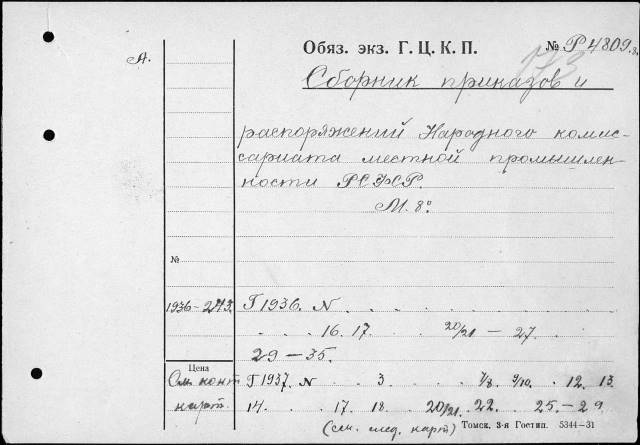 А.
Обяз. экз. Г. Ц. К. П. № Р 4809
Сборник приказов и
распоряжений Народного комис-
сариата местной промышлен-
ности РСФСР.
М. 8°
№
1936–243. Г 1936. N
16. 17. 20/21 – 27.
29 – 35.
Цена
См. конт Г 1937. N 3 7/8. 9/10. 12. 13
карт. 14. 17. 18. 20/21. 22. 25. – 29
(см. след. карт) Томск, 3-я Гостип. 5344—31